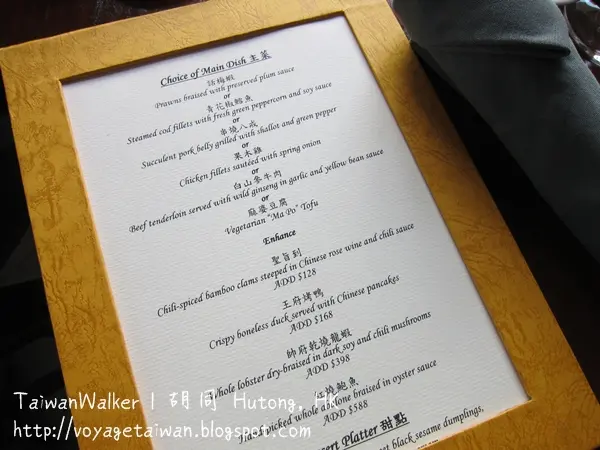 Choice of Main Dish 主菜
話梅蝦
Prawns braised with preserved plum sauce
or
青花椒鱈魚
Steamed cod fillets with fresh green peppercorn and soy sauce
or
串燒八戒
Succulent pork belly grilled with shallot and green pepper
or
果木雞
Chicken fillets sautéed with spring onion
or
白山參牛肉
Beef tenderloin served with wild ginseng in garlic and yellow bean sauce
or
麻婆豆腐
Vegetarian "Ma Po" Tofu
Enhance
聖旨到
Chili-spiced bamboo clams steeped in Chinese rose wine and chili sauce
ADD $128
王府烤鴨
Crispy boneless duck served with Chinese pancakes
ADD $168
帥府乾燒龍蝦
Whole lobster dry-braised in dark soy and chili mushrooms
ADD $398
燒鮑魚
Hand picked whole abalone braised in oyster sauce
ADD $588
Platter 甜點
black sesame dumplings,
TaiwanWalker | 胡同 Hutong, HK
http://voyagetaiwan.blogspot.com/